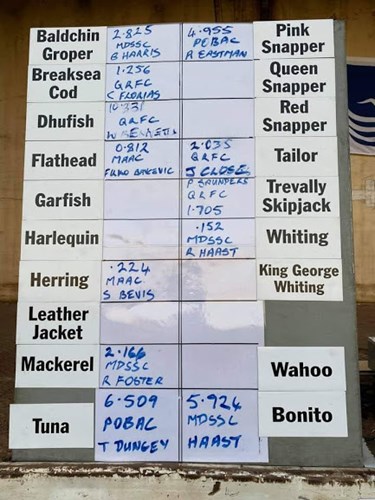 Baldchin
Groper
2.825
MDSSC
B HARRIS
4.955
POBAC
A EASTMAN
Pink
Snapper
Breaksea
Cod
1.256
QRFC
C FLORIAS
Queen
Snapper
Dhufish
QRFC
Red
Snapper
Flathead
0.812
MAAC
2.035
QRFC
J CLOSE
Tailor
Garfish
P SAUNDERS
QRFC
1.705
Trevally
Skipjack
Harlequin
.152
MDSSC
R HAAST
Whiting
Herring
.224
MAAC
S BEVIS
King George
Whiting
Leather
Jacket
Mackerel
2.166
MDSSC
R FOSTER
Wahoo
Tuna
6.509
POBAC
T DUNGEY
5.924
MDSSC
HAAST
Bonito